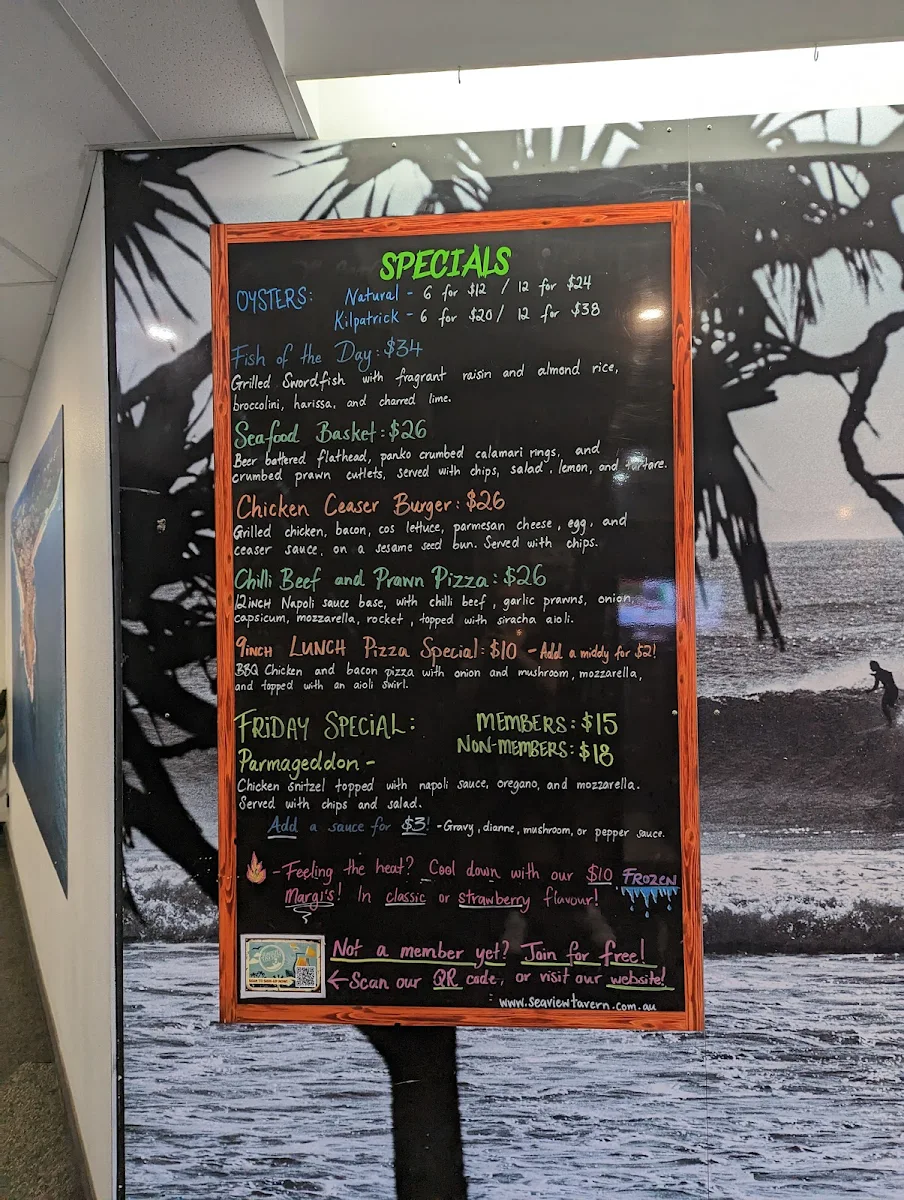 SPECIALS
OYSTERS: Natural - 6 for $12 / 12 for $24
Kilpatrick - 6 for $20 / 12 for $38
Fish of the Day: $34
Grilled Swordfish with fragrant raisin and almond rice,
broccolini, harissa, and charred lime.
Seafood Basket: $26
Beer battered flathead, panko crumbed calamari rings, and
crumbed prawn cutlets, served with chips, salad, lemon, and tartare.
Chicken Ceaser Burger: $26
Grilled chicken, bacon, cos lettuce, parmesan cheese, egg, and
ceaser sauce, on a sesame seed bun. Served with chips.
Chilli Beef and Prawn Pizza: $26
12INCH Napoli sauce base, with chilli beef, garlic prawns, onion,
capsicum, mozzarella, rocket, topped with siracha aioli.
9INCH LUNCH Pizza Special: $10 - Add a middy for $2!
BBQ Chicken and bacon pizza with onion and mushroom, mozzarella,
and topped with an aioli swirl.
FRIDAY SPECIAL: MEMBERS: $15
NON-MEMBERS: $18
Parmageddon -
Chicken snitzel topped with napoli sauce, oregano, and mozzarella.
Served with chips and salad.
Add a sauce for $3! - Gravy, dianne, mushroom, or pepper sauce.
- Feeling the heat? Cool down with our $10 FROZEN
Margi's! In classic or strawberry flavour!
Not a member yet? Join for free!
← Scan our QR code, or visit our website!
www.seaviewtavern.com.au